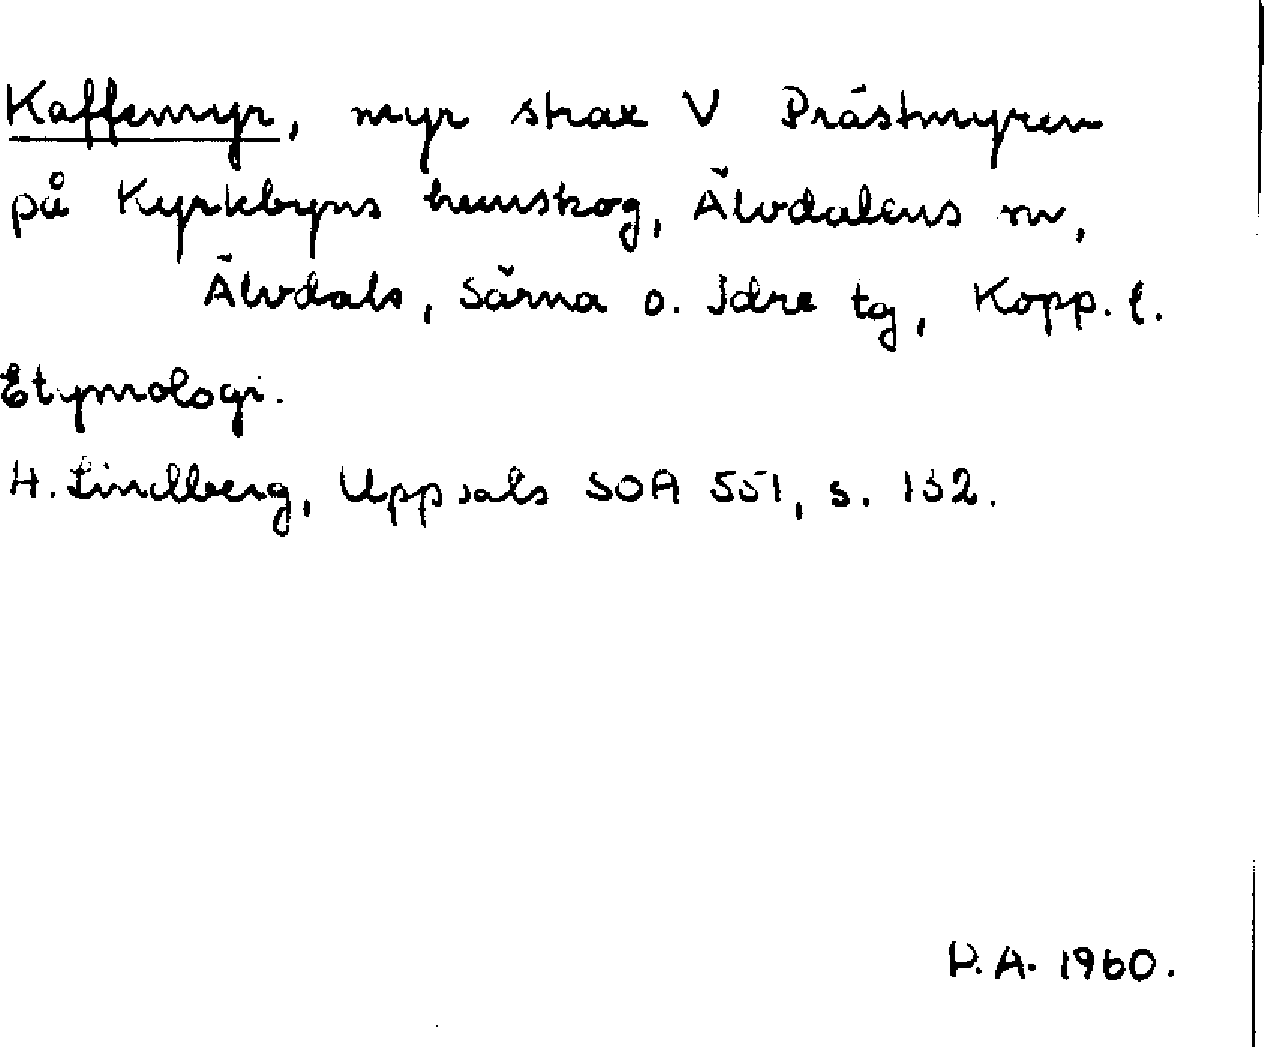 Kaffemyr, myr strax V Prästmyren
på Kyrkbyns hemskog, Älvdalens sn,
Älvdals, Särna o. Idre tg, Kopp. l.
Etymologi.
H. Lindberg, Uppsala SOA 551, s. 132.
P.A. 1960.